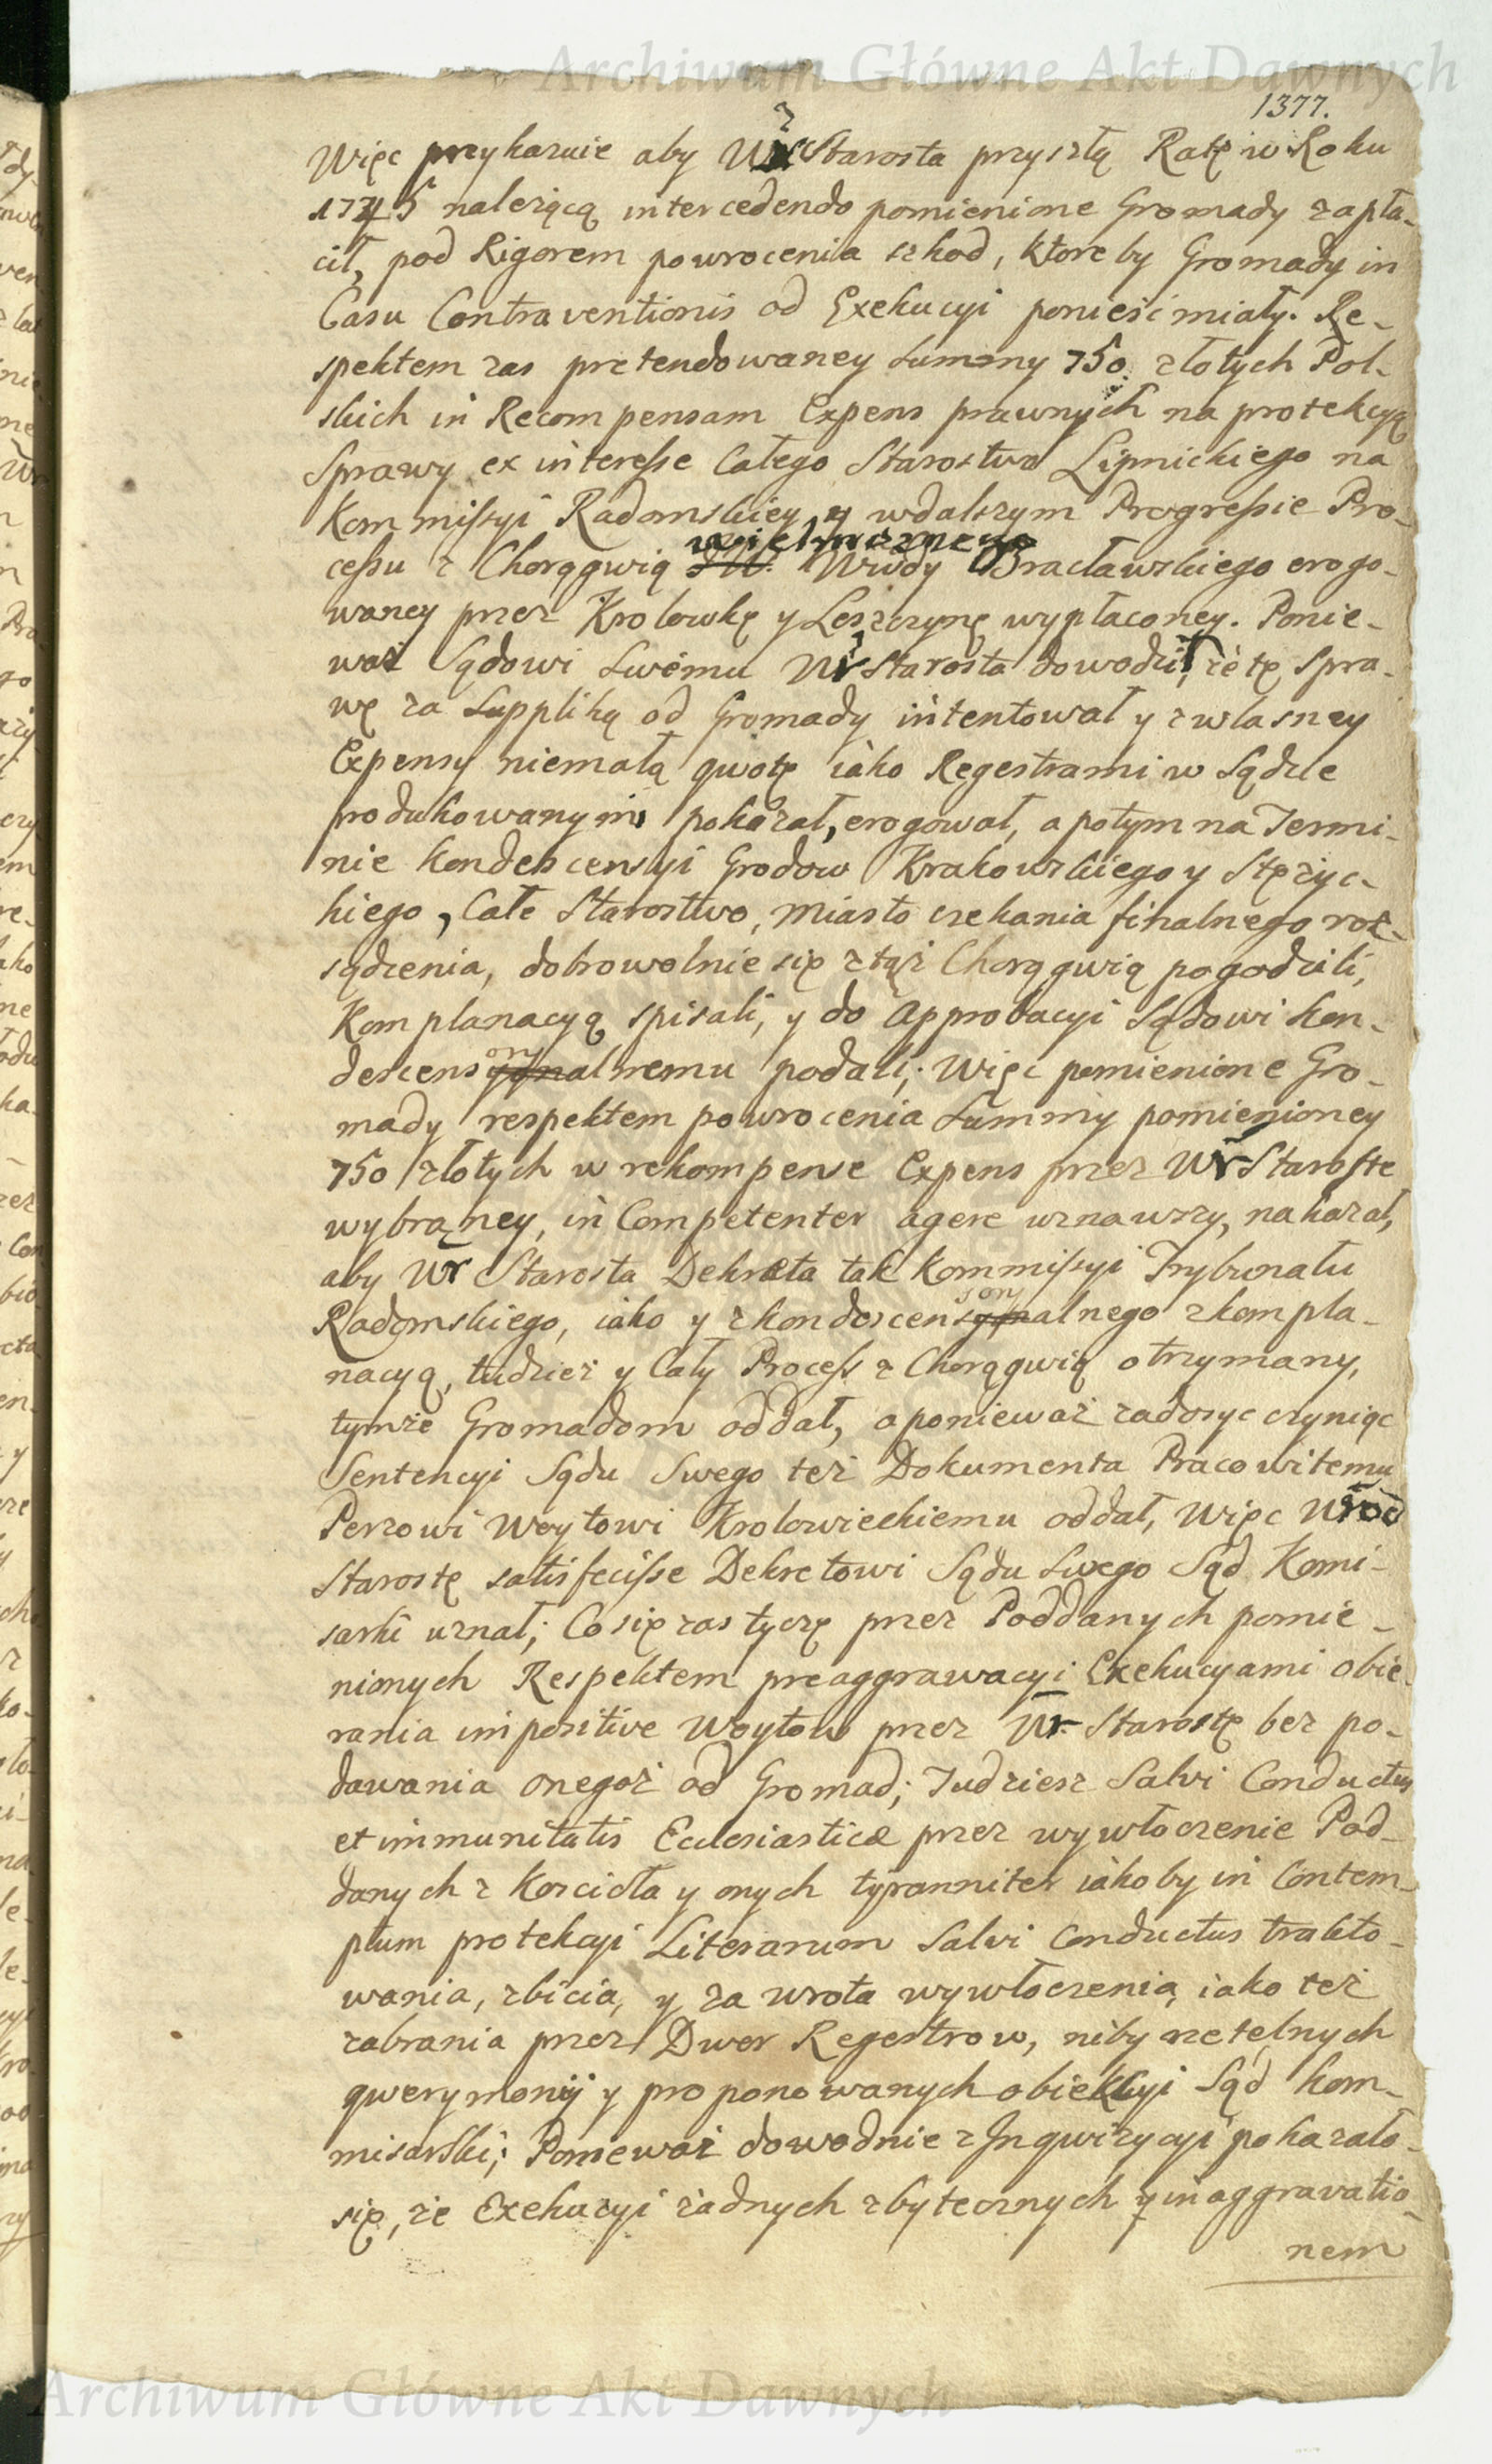 Archiwum Główne Akt Dawnych
1377.
Więc przykazuie aby Wr Starosta przyszłą Ratę w Roku
1745 nalezącą intercedendo pomienione Gromady zapła-
cił, pod Rigorem powrocenia szkod, ktore by Gromady in
Casu Contraventionis od Exekucyi ponieść miały. Re-
spektem zas pretendowaney Summy 750 złotych Pol-
skich in Recompensam Expens prawnych na protekcyą
Sprawy ex interesse Całego Starostwa Lipnickiego na
Kommissyi Radomskiey y wdalszym Progressie Pro-
cessu z Chorągwią wielmoznego Wwody Bracławskiego erogo-
waney przez Krolowkę y Leszczynę wypłaconey. Ponie-
waz Sądowi Swemu Wr Starosta dowodził, że tę Spra-
wę za Suppliką od Gromady intentował y z własney
Expensy niemałą qwotę iako Regestrami w Sądzie
produkowanymi pokazał, erogował, a potym na Termi-
nie Kondescensyi Grodow Krakowskiego y Stężyc-
kiego, Całe Starostwo, miasto czekania finalnego roz-
sądzenia, dobrowolnie się z tąż Chorągwią pogodzili,
Komplanacyą spisali, y do Approbacyi Sądowi Kon-
descensonalnemu podali; Więc pomienione Gro-
mady respektem powrocenia Summy pomienioney
750 złotych w rekompense Expens przez Wr Staroste
wybraney, in Competenter agere uznawszy, nakazał,
aby Wr Starosta Dekreta tak Kommissyi Trybunału
Radomskiego, iako y z kondescensonalnego z kompla-
nacyą, tudzież y Cały Process z Chorągwią otrzymany,
tymże Gromadom oddał, a ponieważ zadosyc czyniąc
Sentencyi Sądu Swego też Dokumenta Pracowitemu
Perzowi Woytowi Krolowieckiemu oddał, Więc Urod
Starostę satisfecisse Dekretowi Sądu Swego Sąd Komi-
sarski uznał; Co się zas tyczę przez Poddanych pomie-
nionych Respektem preaggrawacyi Exekucyami obie-
rania impositive Woytow przez Wr Starostę bez po-
dawania onegoż od Gromad; Tudziesz Salvi Conductus
et immunitatis Ecclesiasticæ przez wywłoczenie Pod-
danych z Koscioła y onych tyranniter iakoby in Contem-
ptum protekcyi Literarum Salvi Conductus trakto-
wania, zbicia, y za wrota wywłoczenia, iako też
zabrania przez Dwor Regestrow, niby rzetelnych
qwerymonij y proponowanych obiekcyi Sąd Kom-
misarski; Ponieważ dowodnie z Inqwizycyi pokazało
się, że Exekucyi żadnych zbytecznych y in aggravatio-
nem
Archiwum Główne Akt Dawnych